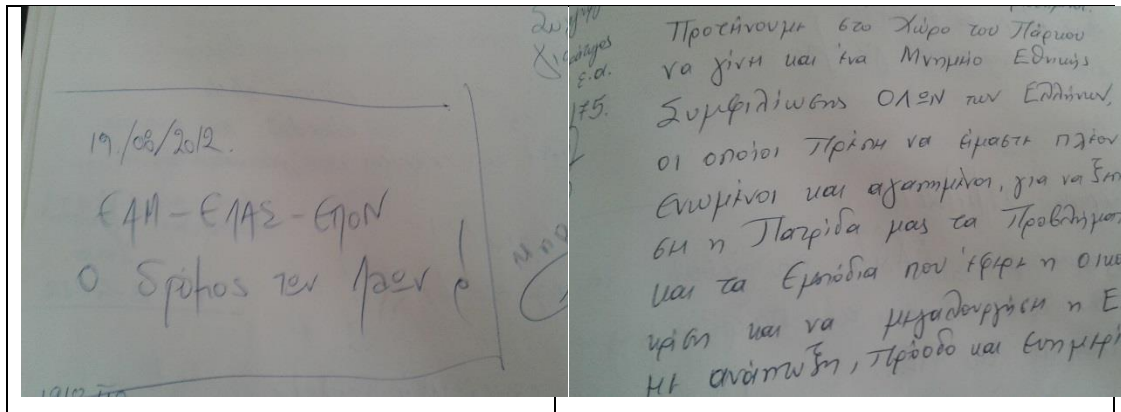 19/08/2012.
ΕΑΜ - ΕΛΑΣ - ΕΠΟΝ
Ο δρόμος των λαών !
ε.α.
175.
Προτήνουμε στο Χώρο του Πάρκου
να γίνη και ένα Μνημείο Εθνικής
Συμφιλίωσης ΟΛΩΝ των Ελλήνων,
οι οποίοι πρέπη να είμαστε πλέον
Ενωμένοι και αγαπημένοι, για να ξεπ
ση η Πατρίδα μας τα Προβλήματ
και τα Εμπόδια που έφερε η οικο
κρίση και να μεγαλουργήση η Ε
με ανάπτυξη, πρόοδο και Ευημερί